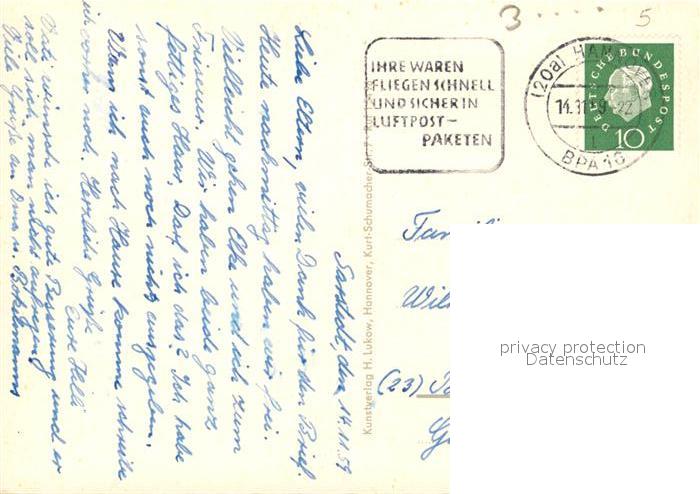 3....
5
IHRE WAREN
FLIEGEN SCHNELL
UND SICHER IN
LUFTPOST-
PAKETEN
(20a) HANNOVER
14.11.59-22
BPA 16
DEUTSCHE BUNDESPOST
10
Sarstedt, den 14.11.59
Liebe Eltern, vielen Dank für den Brief.
Heute nachmittag haben wir frei.
Vielleicht gehen Elke und ich zum
Friseur. Wir haben beide ganz
fettiges Haar. Darf ich das? Ich habe
sonst auch noch nichts ausgegeben.
Wann ich nach Hause komme schreibe
ich vorher noch. Herzliche Grüße
Eure Helli
Vati wünsche ich gute Besserung und er
soll sich man nicht aufregen.
Viele Grüße an Oma u.
Kunstverlag H. Lukow, Hannover, Kurt-Schumacher-Str.
Familie
Wil
(23)
privacy protection
Datenschutz